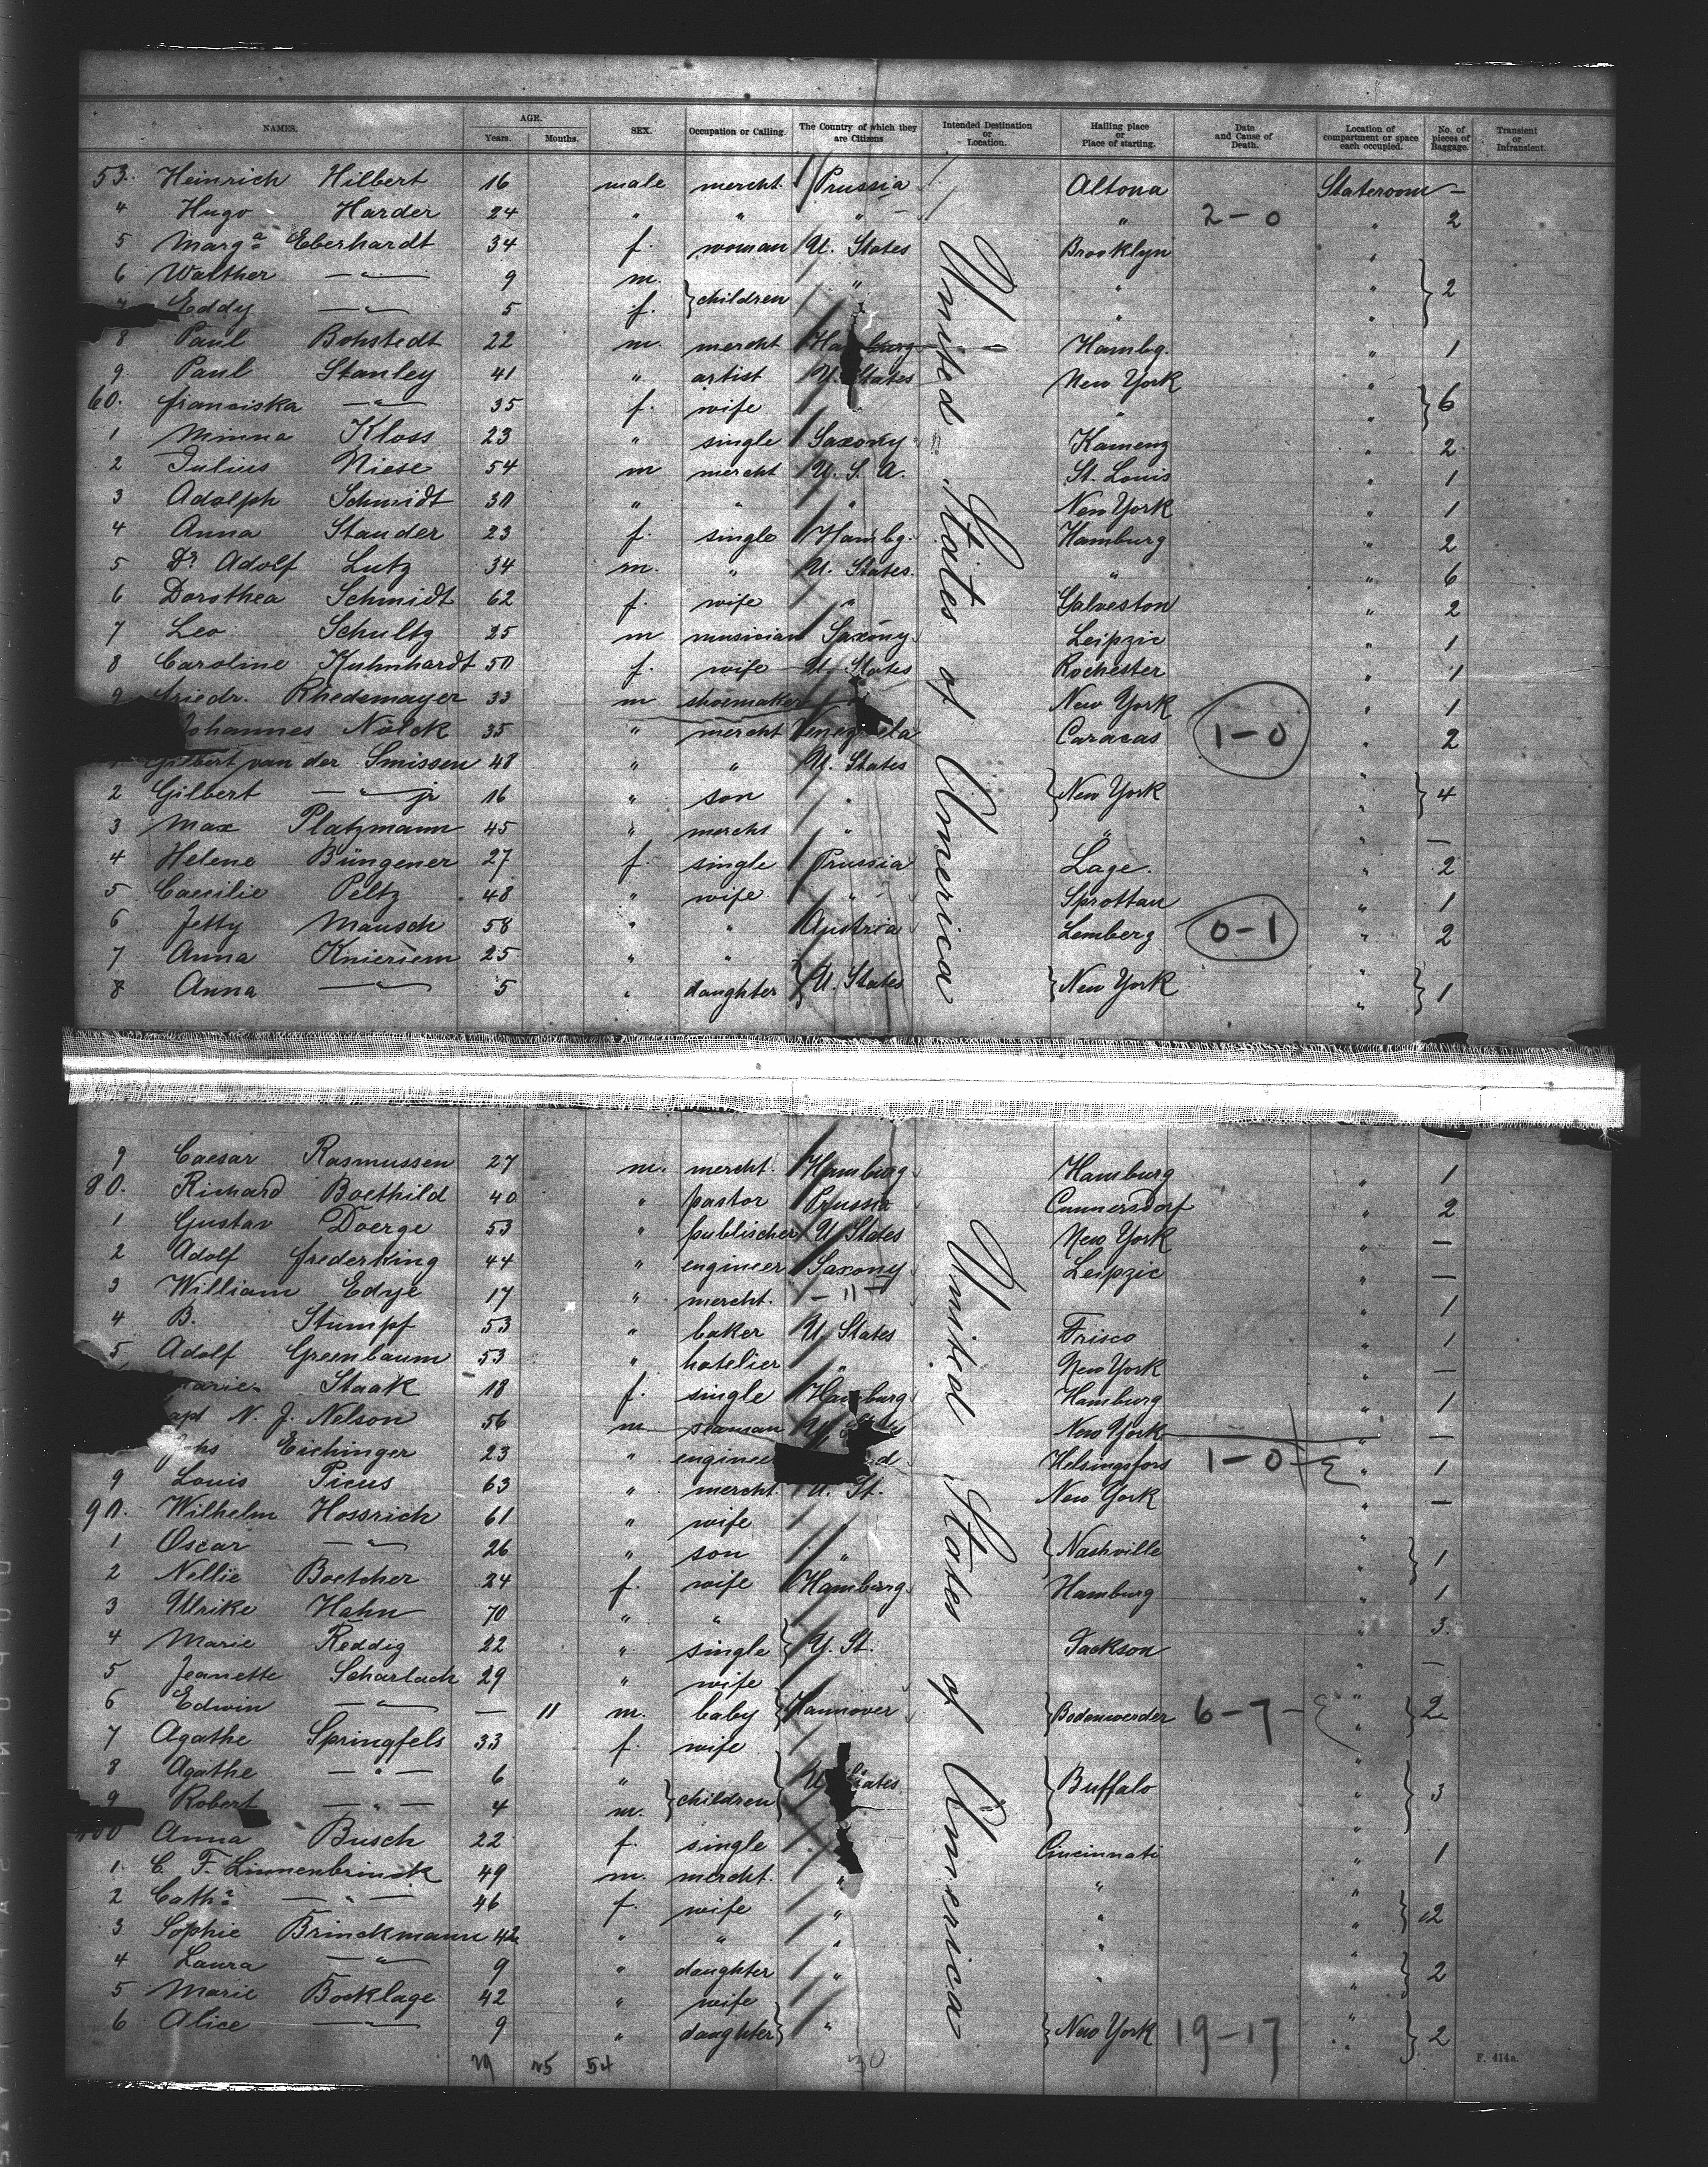 NAMES. AGE. Years. Months. SEX. Occupation or Calling. The Country of which they are Citizens Intended Destination or Location. Hailing place or Place of starting. Date and Cause of Death. Location of compartment or space each occupied. No. of pieces of Baggage. Transient or Intransient.
53. Heinrich Hilbert 16 male mercht. Prussia Altona Stateroom —
4 Hugo Harder 24 " " " " 2-0 " 2
5 Marga Eberhardt 34 f. woman U. States Brooklyn "
6 Walther —"— 9 m. } children " " " } 2
Eddy —"— 5 f. " "
8 Paul Bohstedt 22 m. mercht Hamburg Hambg. " 1
9 Paul Stanley 41 " artist U. States New York "
60. Franciska —"— 35 f. wife " " } 6
1 Minna Kloss 23 " single Saxony Kamenz " 2
2 Julius Niese 54 m mercht U. S. A. St. Louis " 1
3 Adolph Schmidt 30 " " " New York " 1
4 Anna Stauder 23 f. single Hambg. Hamburg " 2
5 Dr Adolf Lutz 34 m. " U. States. " " 6
6 Dorothea Schmidt 62 f. wife " Galveston " 2
7 Leo Schultz 25 m musician Saxony Leipzic " 1
8 Caroline Kuhnhardt 50 f. wife U. States Rochester " 1
9 Friedr. Rhedemayer 33 m shoemaker New York " 1
Johannes Nölck 35 " mercht Venezuela Caracas 1-0 " 2
Gilbert van der Smissen 48 " " U. States "
2 Gilbert —"— jr 16 " son " } New York " } 4
3 Max Platzmann 45 " mercht " " " —
4 Helene Büngener 27 f. single Prussia Lage. " 2
5 Caecilie Peltz 48 " wife " Sprottau " 1
6 Jetty Mausch 58 " " Austria Lemberg 0-1 " 2
7 Anna Knieriem 25 " " "
8 Anna —"— 5 " daughter } U. States } New York " } 1
United States of America
9 Caesar Rasmussen 27 m. mercht. Hamburg Hamburg " 1
80. Richard Boethild 40 " pastor Prussia Cunnersdorf " 2
1 Gustav Doerge 53 " publischer U States New York " —
2 Adolf Frederking 44 " engineer Saxony Leipzic " —
3 William Edye 17 " mercht. — " — " 1
4 B. Stumpf 53 " baker U. States Frisco " 1
5 Adolf Greenbaum 53 " hotelier " New York " —
Marie Staak 18 f. single Hamburg Hamburg " 1
Capt N. J. Nelson 56 m seaman U. States New York " —
Johs Eichinger 23 " engineer d Helsingsfors 1-0 " 1
9 Louis Picus 63 " mercht. U. St. New York " —
90. Wilhelm Hossrich 61 " wife "
1 Oscar —"— 26 " son " } Nashville " } 1
2 Nellie Boetcher 24 f. wife Hamburg Hamburg " 1
3 Ulrike Hahn 70 " " " 3
4 Marie Reddig 22 " single } U. St. Jackson " —
5 Jeanette Scharlach 29 " wife "
6 Edwin —"— — 11 m. baby } Hannover } Bodenwerder 6-7 " } 2
7 Agathe Springfels 33 f. wife "
8 Agathe —"— 6 " } children U. States } Buffalo " } 3
9 Robert —"— 4 m. "
100 Anna Busch 22 f. single Cincinnati " 1
1. C. F. Linnenbrinck 49 m. mercht. " " "
2 Catha —"— 46 f. wife " " " } 2
3 Sophie Brinckmann 42 " " " " "
4 Laura —"— 9 " daughter " " " } 2
5 Marie Bocklage 42 " wife "
6 Alice —"— 9 " daughter } " } New York 19-17 " } 2
United States of America
29 25 54 30 F. 414a.